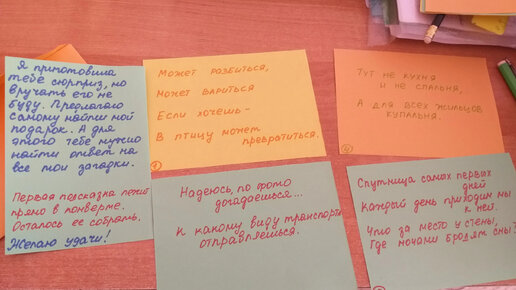 Я приготовила
тебе сюрприз, но
вручать его не
буду. Предлагаю
самому найти мой
подарок. А для
этого тебе нужно
найти ответ на
все мои загадки.
Первая подсказка лежит
прямо в конверте.
Осталось её собрать.
Желаю удачи!
Может разбиться,
Может вариться
Если хочешь -
В птицу может
превратиться.
Тут не кухня
и не спальня,
А для всех жильцов
купальня.
Надеюсь, по фото
догадаешься...
к какому виду транспорта
отправляешься.
Спутница самых первых
дней
Каждый день приходим мы
к ней.
Что за место у стены,
Где ночами бродят сны?